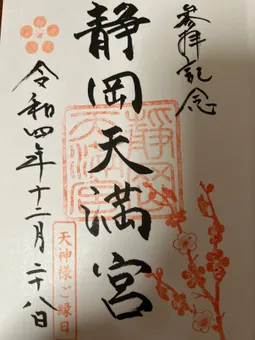 参拝記念
静岡天満宮
令和四年十二月二十八日
天神様ご縁日
静岡
天満宮